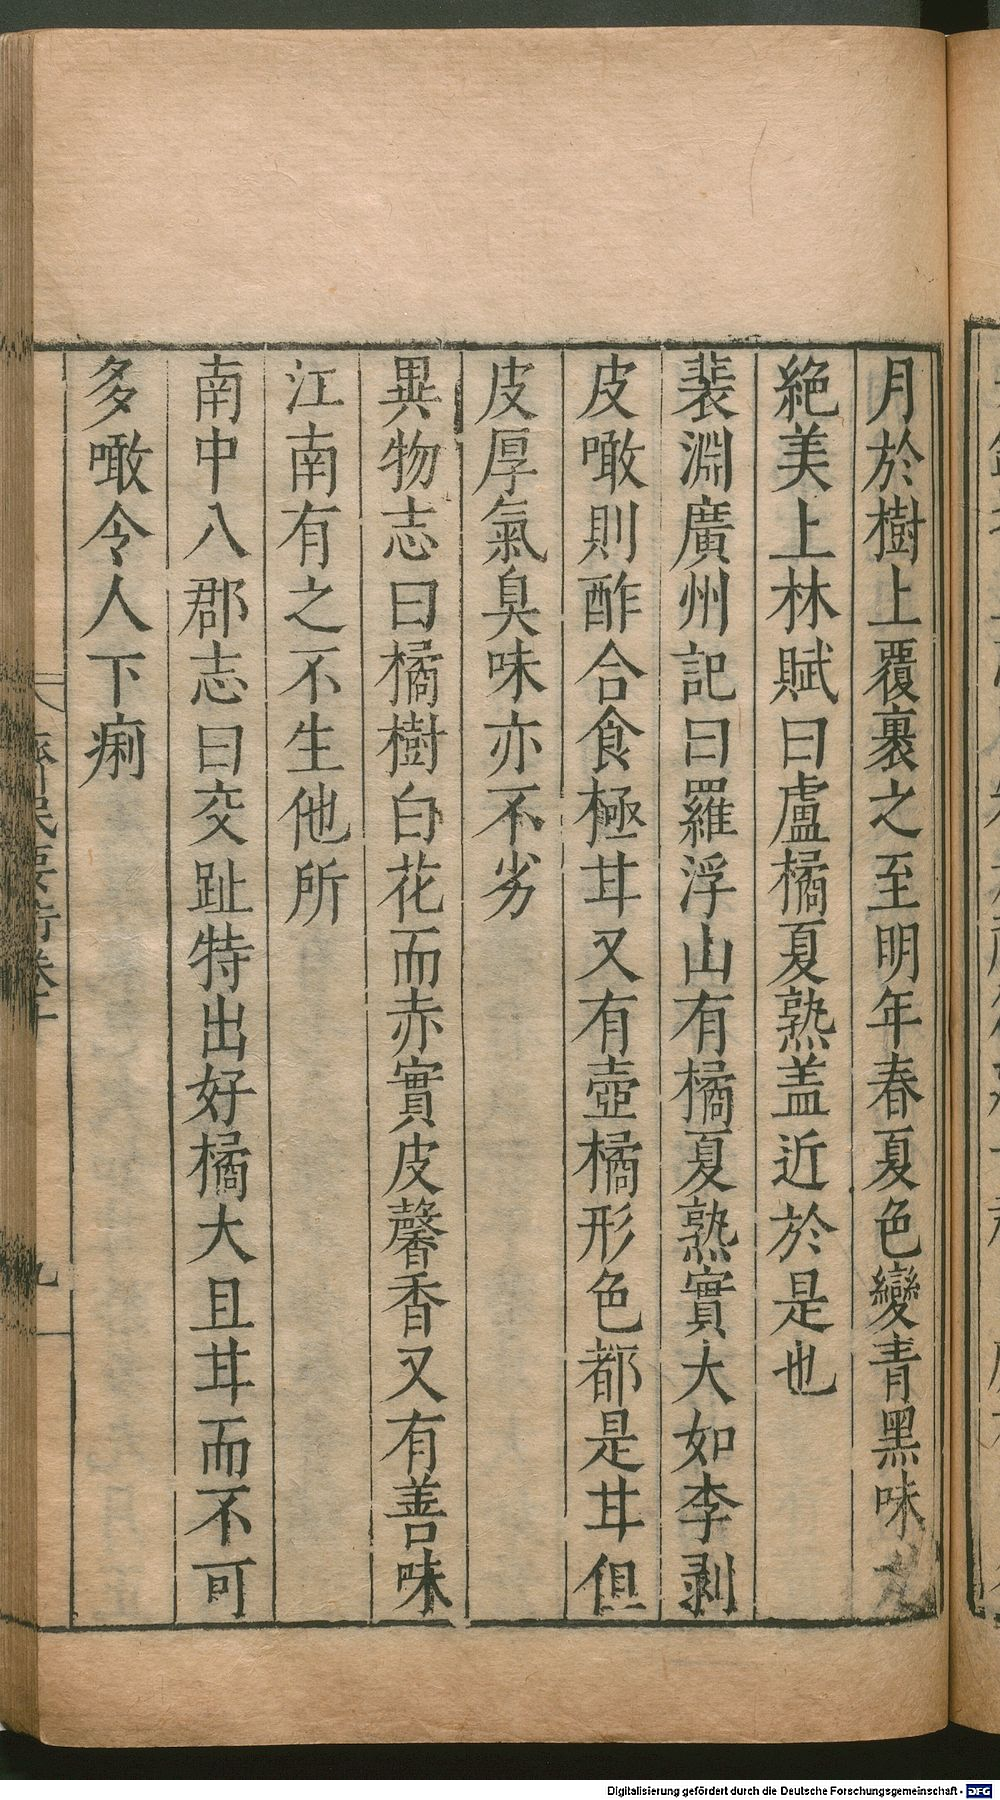 月於樹上覆裹之至明年春夏色變青黑味
絶美上林賦曰盧橘夏熟盖近於是也
裴淵廣州記曰羅浮山有橘夏熟實大如李剥
皮噉則酢合食極甘又有壺橘形色都是甘但
皮厚氣臭味亦不劣
異物志曰橘樹白花而赤實皮馨香又有善味
江南有之不生他所
南中八郡志曰交趾特出好橘大且甘而不可
多噉令人下痢
齊民要術卷十
九
Digitalisierung gefördert durch die Deutsche Forschungsgemeinschaft - DFG